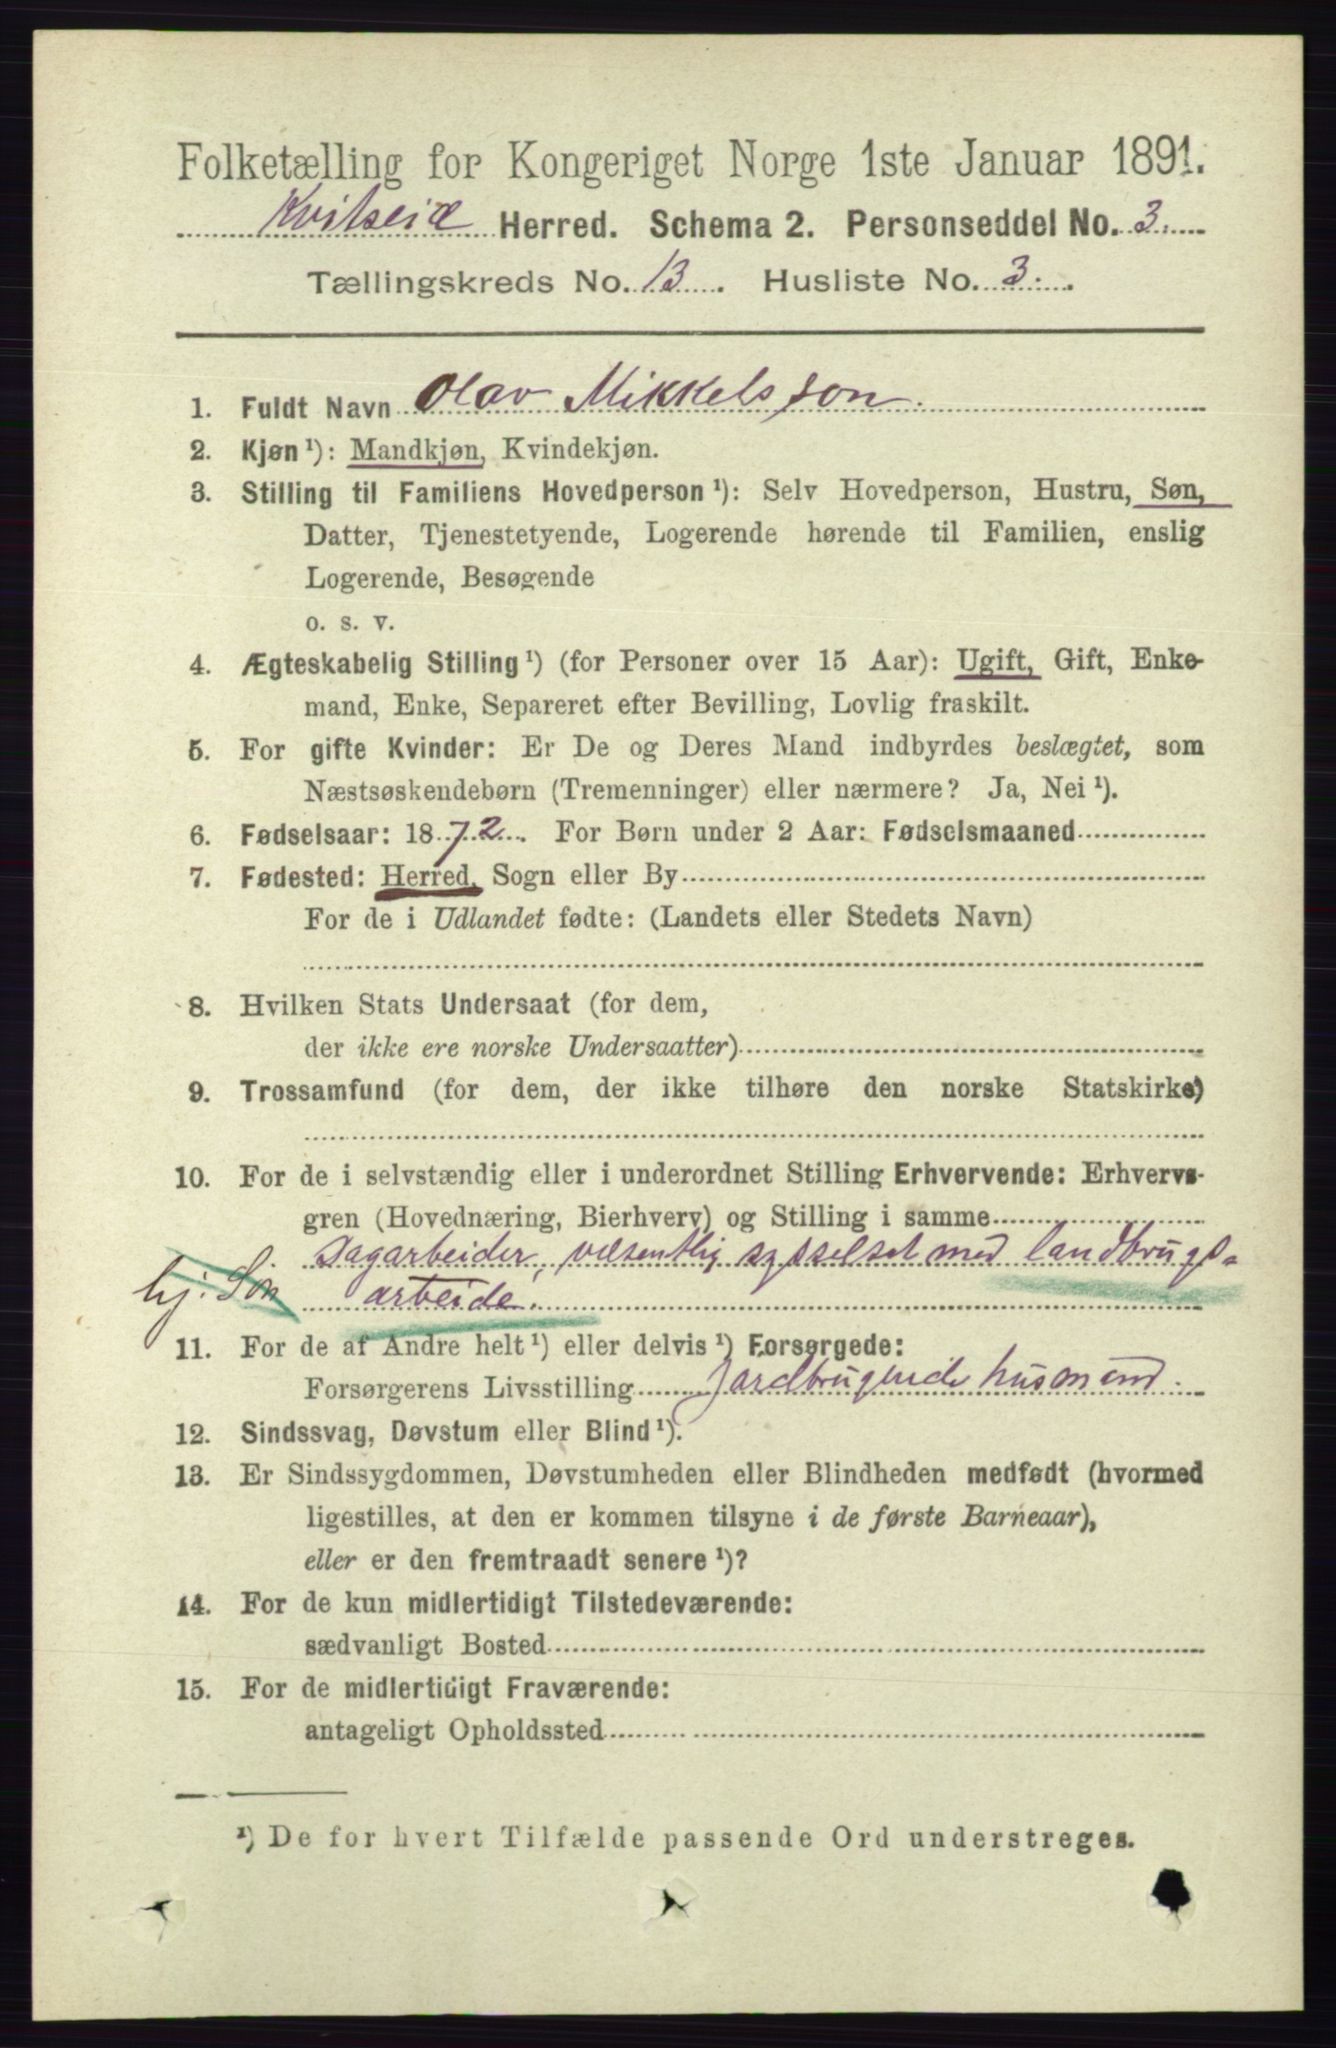 Folketælling for Kongeriget Norge 1ste Januar 1891.
Kvitseid Herred. Schema 2. Personseddel No. 3.
Tællingskreds No. 13. Husliste No. 3.
1. Fuldt Navn Olav Mikkelsson.
2. Kjøn ¹): Mandkjøn, Kvindekjøn.
3. Stilling til Familiens Hovedperson ¹): Selv Hovedperson, Hustru, Søn,
Datter, Tjenestetyende, Logerende hørende til Familien, enslig
Logerende, Besøgende
o. s. v.
4. Ægteskabelig Stilling ¹) (for Personer over 15 Aar): Ugift, Gift, Enke-
mand, Enke, Separeret efter Bevilling, Lovlig fraskilt.
5. For gifte Kvinder: Er De og Deres Mand indbyrdes beslægtet, som
Næstsøskendebørn (Tremenninger) eller nærmere? Ja, Nei ¹).
6. Fødselsaar: 1872. For Børn under 2 Aar: Fødselsmaaned
7. Fødested: Herred, Sogn eller By
For de i Udlandet fødte: (Landets eller Stedets Navn)
8. Hvilken Stats Undersaat (for dem,
der ikke ere norske Undersaatter)
9. Trossamfund (for dem, der ikke tilhøre den norske Statskirke)
10. For de i selvstændig eller i underordnet Stilling Erhvervende: Erhvervs-
gren (Hovednæring, Bierhverv) og Stilling i samme
Dagarbeider, væsentlig sysselset med landbrugs-
hj. Søn arbeide.
11. For de af Andre helt ¹) eller delvis ¹) Forsørgede:
Forsørgerens Livsstilling Jordbrugende husmand.
12. Sindssvag, Døvstum eller Blind ¹).
13. Er Sindssygdommen, Døvstumheden eller Blindheden medfødt (hvormed
ligestilles, at den er kommen tilsyne i de første Barneaar),
eller er den fremtraadt senere ¹)?
14. For de kun midlertidigt Tilstedeværende:
sædvanligt Bosted
15. For de midlertidigt Fraværende:
antageligt Opholdssted
¹) De for hvert Tilfælde passende Ord understreges.